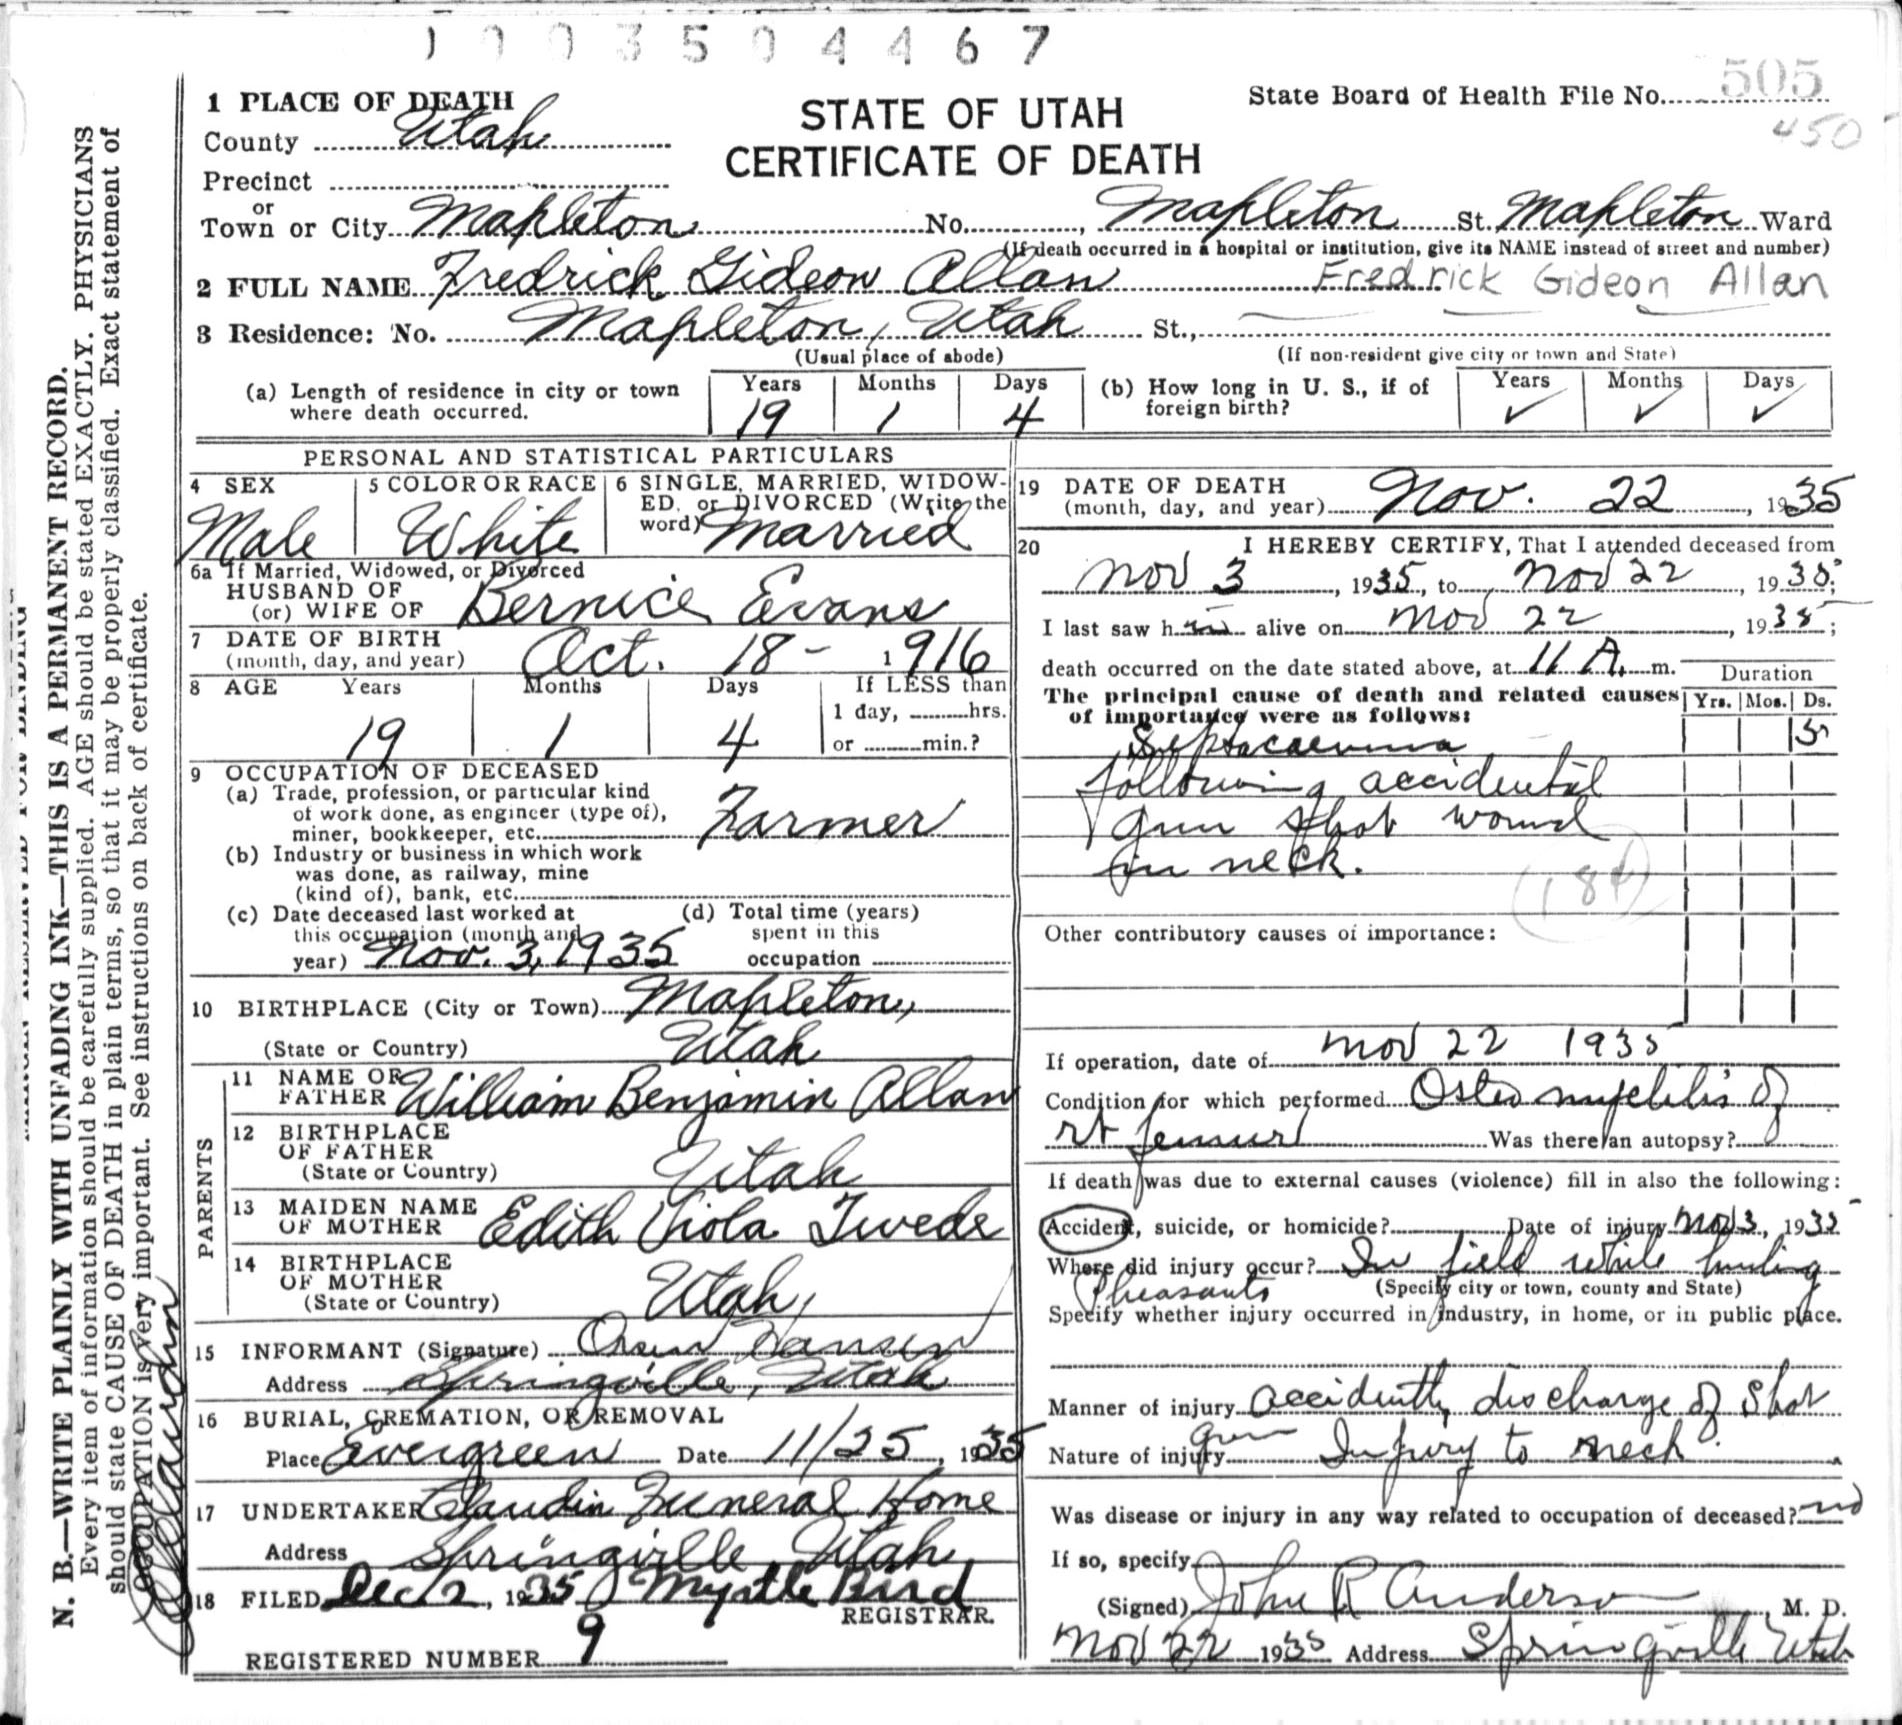 1003504467
1 PLACE OF DEATH
STATE OF UTAH
CERTIFICATE OF DEATH
State Board of Health File No. 505
450
County Utah
Precinct
or
Town or City Mapleton No. , Mapleton St. Mapleton Ward
(If death occurred in a hospital or institution, give its NAME instead of street and number)
2 FULL NAME Fredrick Gideon Allan Fredrick Gideon Allan
3 Residence: No. Mapleton, Utah St.,
(Usual place of abode) (If non-resident give city or town and State)
(a) Length of residence in city or town where death occurred. Years 19 Months 1 Days 4
(b) How long in U. S., if of foreign birth? Years ✓ Months ✓ Days ✓
PERSONAL AND STATISTICAL PARTICULARS
4 SEX Male
5 COLOR OR RACE White
6 SINGLE, MARRIED, WIDOWED, or DIVORCED (Write the word) Married
6a If Married, Widowed, or Divorced
HUSBAND OF
(or) WIFE OF Bernice Evans
7 DATE OF BIRTH
(month, day, and year) Oct. 18 - 1916
8 AGE Years 19 Months 1 Days 4 If LESS than
1 day, hrs.
or min.?
9 OCCUPATION OF DECEASED
(a) Trade, profession, or particular kind
of work done, as engineer (type of),
miner, bookkeeper, etc. Farmer
(b) Industry or business in which work
was done, as railway, mine
(kind of), bank, etc.
(c) Date deceased last worked at
this occupation (month and
year) Nov. 3, 1935
(d) Total time (years)
spent in this
occupation
10 BIRTHPLACE (City or Town) Mapleton,
(State or Country) Utah
PARENTS
11 NAME OF
FATHER William Benjamin Allan
12 BIRTHPLACE
OF FATHER
(State or Country) Utah
13 MAIDEN NAME
OF MOTHER Edith Viola Twede
14 BIRTHPLACE
OF MOTHER
(State or Country) Utah
15 INFORMANT (Signature) Hansen
Address Springville, Utah
16 BURIAL, CREMATION, OR REMOVAL
Place Evergreen Date 11/25, 1935
17 UNDERTAKER Claudin Funeral Home
Address Springville Utah
18 FILED Dec 2, 1935 Myrtle Bird
REGISTRAR.
REGISTERED NUMBER 9
19 DATE OF DEATH
(month, day, and year) Nov. 22, 1935
20 I HEREBY CERTIFY, That I attended deceased from
Nov 3, 1935, to Nov 22, 1935;
I last saw h im alive on Nov 22, 1935;
death occurred on the date stated above, at 11 A. m.
The principal cause of death and related causes
of importance were as follows:
Duration
Yrs. Mos. Ds.
Septacaemia 5
following accidental
gun shot wound
in neck.
Other contributory causes of importance:
If operation, date of Nov 22 1935
Condition for which performed Osteomyelitis of
rt femur Was there an autopsy?
If death was due to external causes (violence) fill in also the following:
Accident, suicide, or homicide? Date of injury Nov 3, 1935
Where did injury occur? In field while hunting
Pheasants (Specify city or town, county and State)
Specify whether injury occurred in industry, in home, or in public place.
Manner of injury discharge of Shot
gun
Nature of injury Injury to neck
Was disease or injury in any way related to occupation of deceased? no
If so, specify
(Signed) John R Anderson, M. D.
Nov 22 1935 Address Springville Utah
N. B.—WRITE PLAINLY WITH UNFADING INK—THIS IS A PERMANENT RECORD.
Every item of information should be carefully supplied. AGE should be stated EXACTLY. PHYSICIANS
should state CAUSE OF DEATH in plain terms, so that it may be properly classified. Exact statement of
OCCUPATION is very important. See instructions on back of certificate.